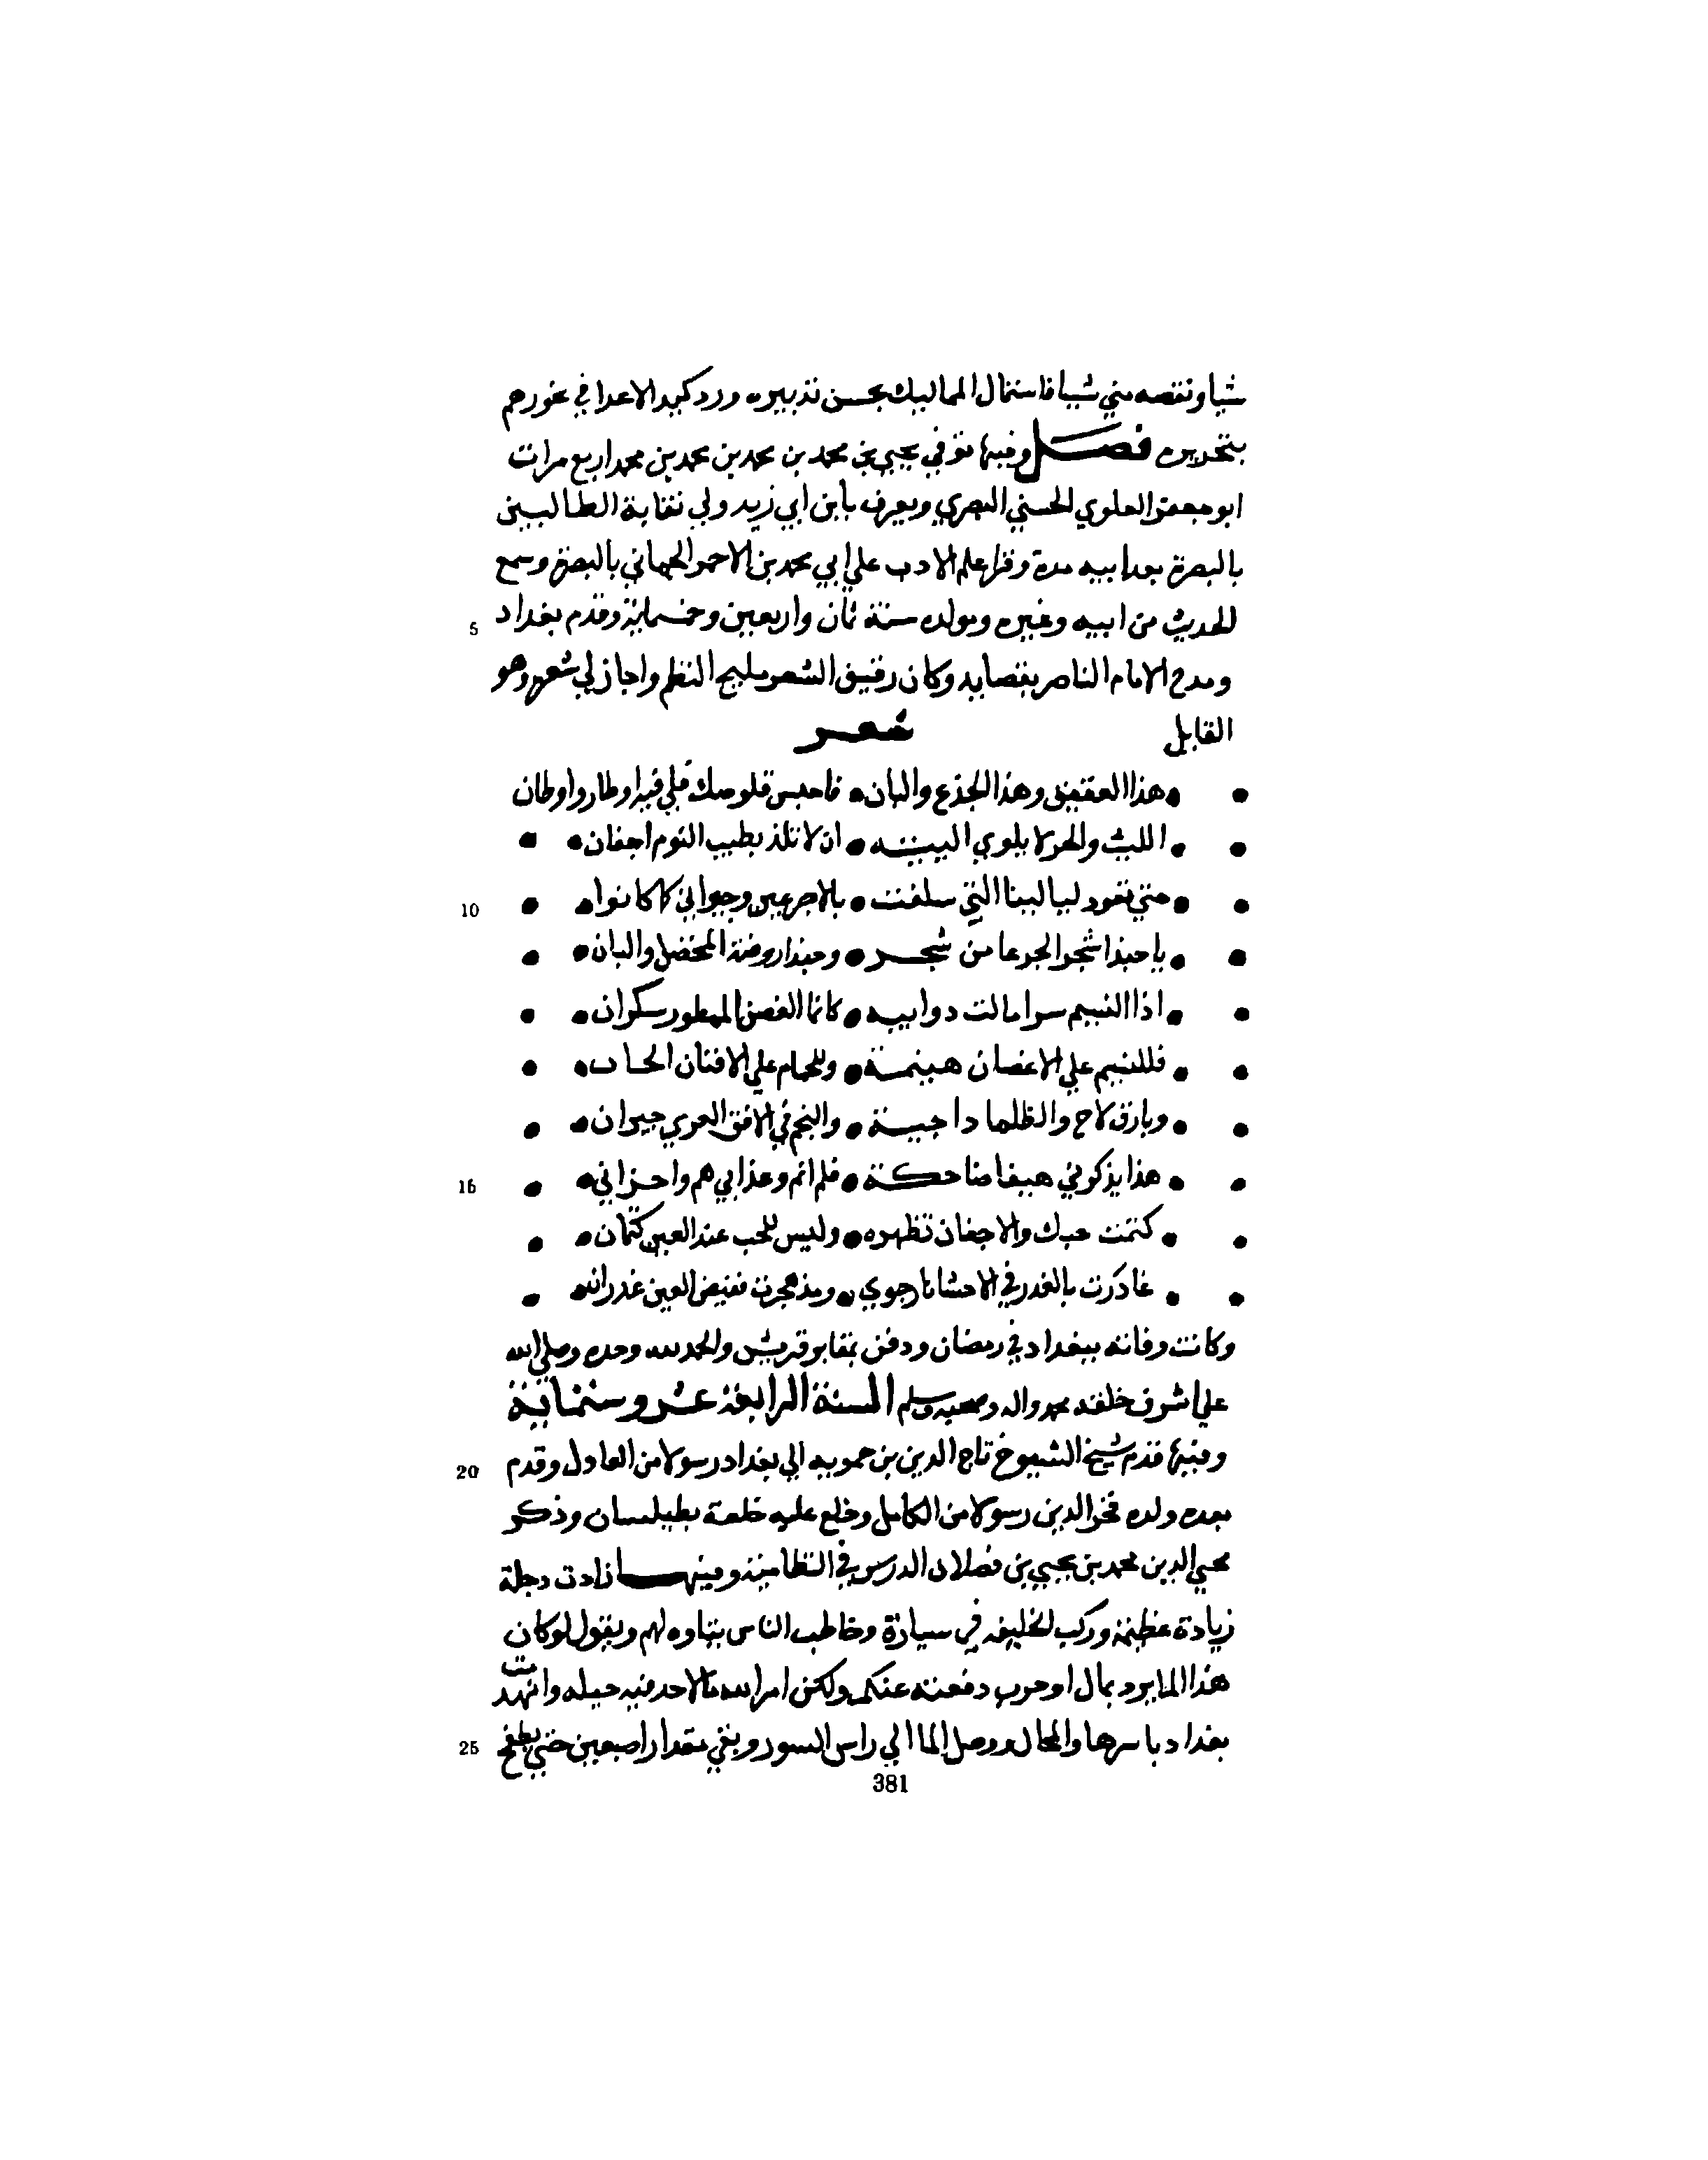 شيا ونقصه مني شيا فاستمال المماليك بحسن تدبيره ورد كيد الاعدا في نحورهم
بتحريره فصل وفيها توفي يحيي بن محمد بن محمد بن محمد بن محمد اربع مرات
ابو جعفر العلوي الحسني البصري ويعرف بابن ابي زيد ولي نقابة الطالبيين
بالبصرة بعد ابيه مدة وقرا علم الادب علي ابي محمد بن الاحمر الحماني بالبصرة وسمع
5 الحديث من ابيه وغيره ومولده سنة ثمان واربعين وخمسماية وقدم بغداد
ومدح الامام الناصر بقصايد وكان رقيق الشعر مليح النظم واجاز لي شعره وهو
القايل شعر
هذا العقيق وهذا الجذع والبان فاحبس قلوصك فلي فيه اوطار واوطان
اليت والحر لا يلوي اليته ان لا تلذ بطيب النوم اجفان
10 متي تعود ليالينا التي سلفت بالاجرعين وجيراني كما كانوا
يا حبذا شجر الجرعا من شجر وحبذا روضة المخضل والبان
اذا النسيم سرا مالت دوابيه كانما الغصن الممطور سكران
فللنسيم علي الاغصان هينمة وللحمام علي الافنان الحان
وبارق لاح والظلما داجية والنجم في الافق الغربي حيران
15 هذا يذكرني هيفا ضاحكة فلم انم وعذابي هم واحزاني
كتمت حبك والاجفان تظهره وليس للحب عند العين كتمان
غادرت بالغدر في الاحشا نار جوي ومذ هجرت ففيض العين غدران
وكانت وفاته ببغداد في رمضان ودفن بمقابر قريش والحمد لله وحده وصلي الله
علي اشرف خلقه محمد واله وصحبه وسلم السنة الرابعة عشر وستماية
20 وفيها قدم شيخ الشيوخ تاج الدين بن حمويه الي بغداد رسولا من العادل وقدم
بعده ولده فخر الدين رسولا من الكامل وخلع عليه خلعة بطيلسان وذكر
محيي الدين محمد بن يحيي بن فضلان الدرس في النظامية وفيها زادت دجلة
زيادة عظيمة وركب الخليفة في سيارة وخاطب الناس بتاوه لهم ويقول لو كان
هذا الما يرد بمال او حرب دفعته عنكم ولكن امر الله ما لاحد فيه حيله وانهدمت
25 بغداد باسرها والمحال ووصل الما الي راس السور وبقي مقدار اصبعين حتي يطفح
381